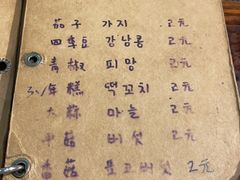 茄子 가지 2元
四季豆 강낭콩 2元
青椒 피망 2元
年糕 떡꼬치 2元
大蒜 마늘 2元
平菇 버섯 2元
香菇 표고버섯 2元